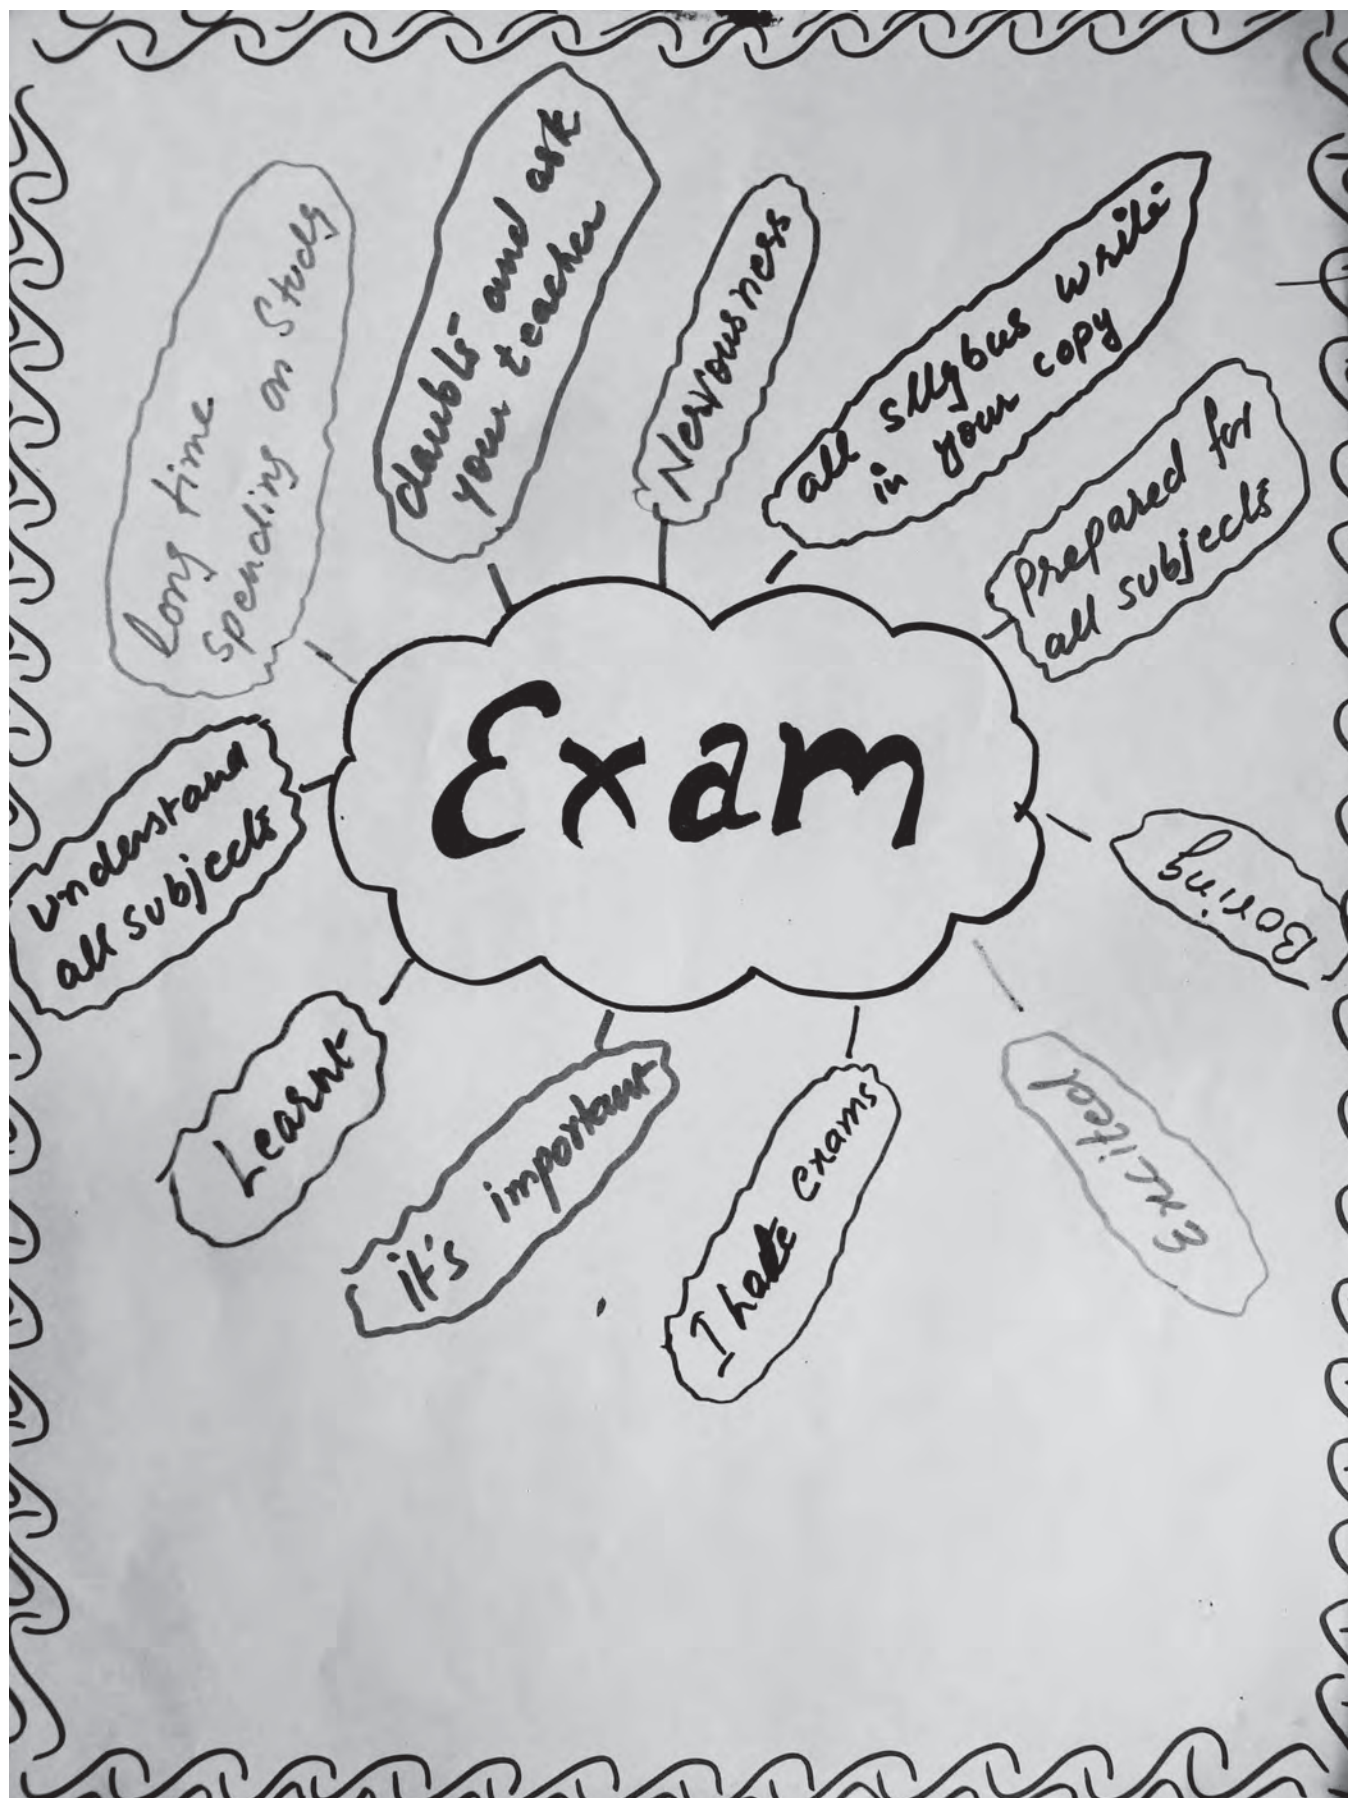 Exam
long time
spending on Study
doubts and ask
your teacher
Nervousness
all sllybus write
in your copy
Prepared for
all subjects
Boring
Excited
I hate exams
it's important
Learnt
understand
all subjects